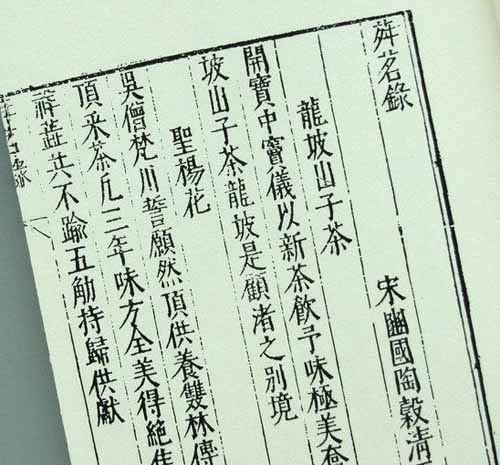 荈茗錄
宋幽國陶穀清
龍坡山子茶
開寶中竇儀以新茶飲予味極美奩
坡山子茶龍坡是顧渚之别境
聖楊花
吳僧梵川誓願然頂供養雙林傳
頂采茶凡三年味方全美得絕佳
祥蘂共不踰五觔持歸供獻